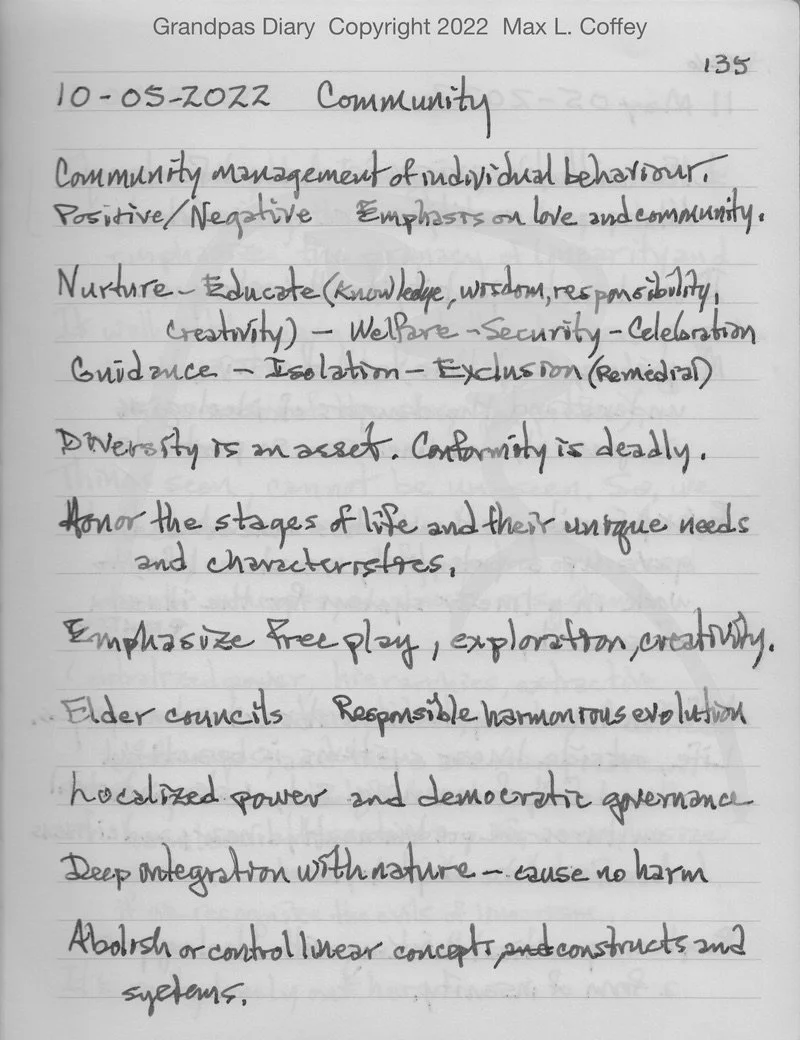 Grandpas Diary Copyright 2022 Max L. Coffey
135
10-05-2022 Community
Community management of individual behaviour.
Positive/Negative Emphasis on love and community.
Nurture - Educate (knowledge, wisdom, responsibility,
creativity) - Welfare - Security - Celebration
Guidance - Isolation - Exclusion (Remedial)
Diversity is an asset. Conformity is deadly.
Honor the stages of life and their unique needs
and characteristics.
Emphasize free play, exploration, creativity.
Elder councils Responsible harmonious evolution
Localized power and democratic governance
Deep integration with nature - cause no harm
Abolish or control linear concepts, and constructs and
systems.